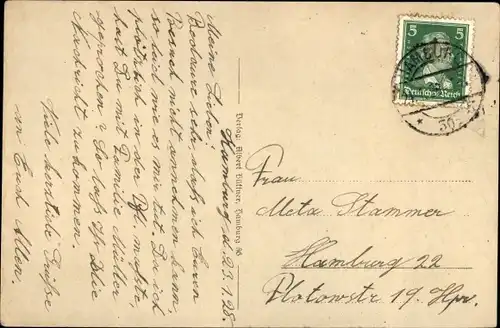 Hamburg d. 23.1.28.
Meine Lieben!
Bedaure sehr daß ich Euren
Besuch nicht annehmen kann,
so leid wie es mir tut. Da ich
plötzlich in der mußte
hast Du mit Familie Müller
gesprochen? So laß Sie
Nachricht zukommen.
Viele herzliche Grüße
an Euch Allen.
Verlag: Albert Büttner, Hamburg 36
5 5
Deutsches Reich
HAMBURG
* 30
Frau
Meta Stammer
Hamburg 22
Flotowstr 19. Hpr.